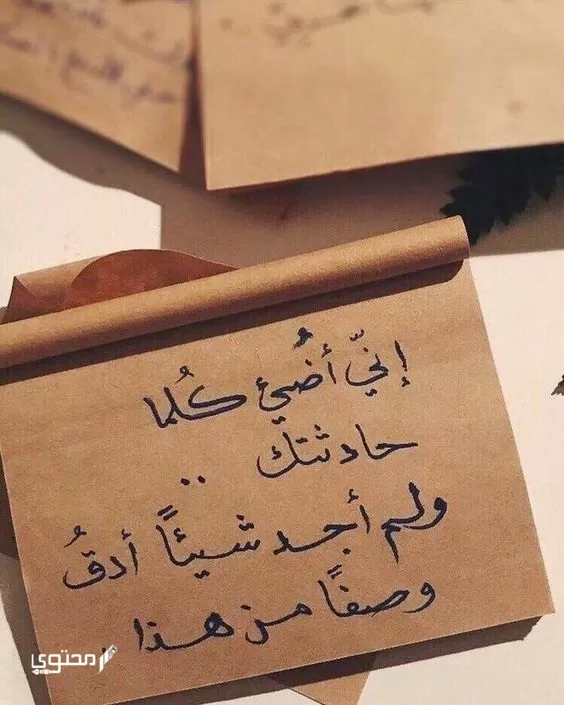 إنّي أُضيئ كُلما
حادثتك ..
ولم أجد شيئاً أدقُ
وصفاً من هذا .
محتوى